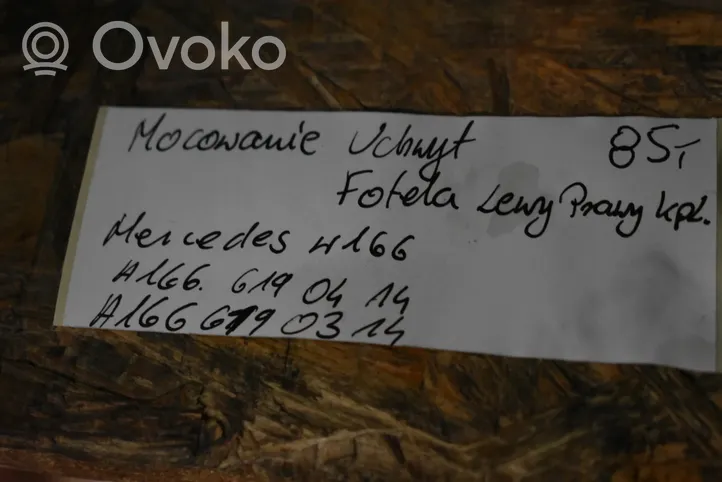 Ovoko
Mocowanie Uchwyt 85,-
Fotela Lewy Prawy kpl.
Mercedes W166
A166. 619 04 14
A166 619 03 14